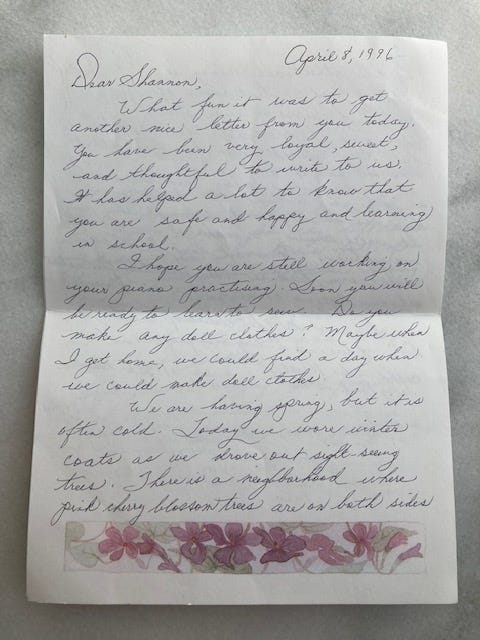 April 8, 1996
Dear Shannon,
What fun it was to get
another nice letter from you today.
You have been very loyal, sweet,
and thoughtful to write to us.
It has helped a lot to know that
you are safe and happy and learning
in school.
I hope you are still working on
your piano practising. Soon you will
be ready to learn to sew. Do you
make any doll clothes? Maybe when
I get home, we could find a day when
we could make doll clothes.
We are having spring, but it is
often cold. Today we wore winter
coats as we drove out sight-seeing
trees. There is a neighborhood where
pink cherry blossom trees are on both sides